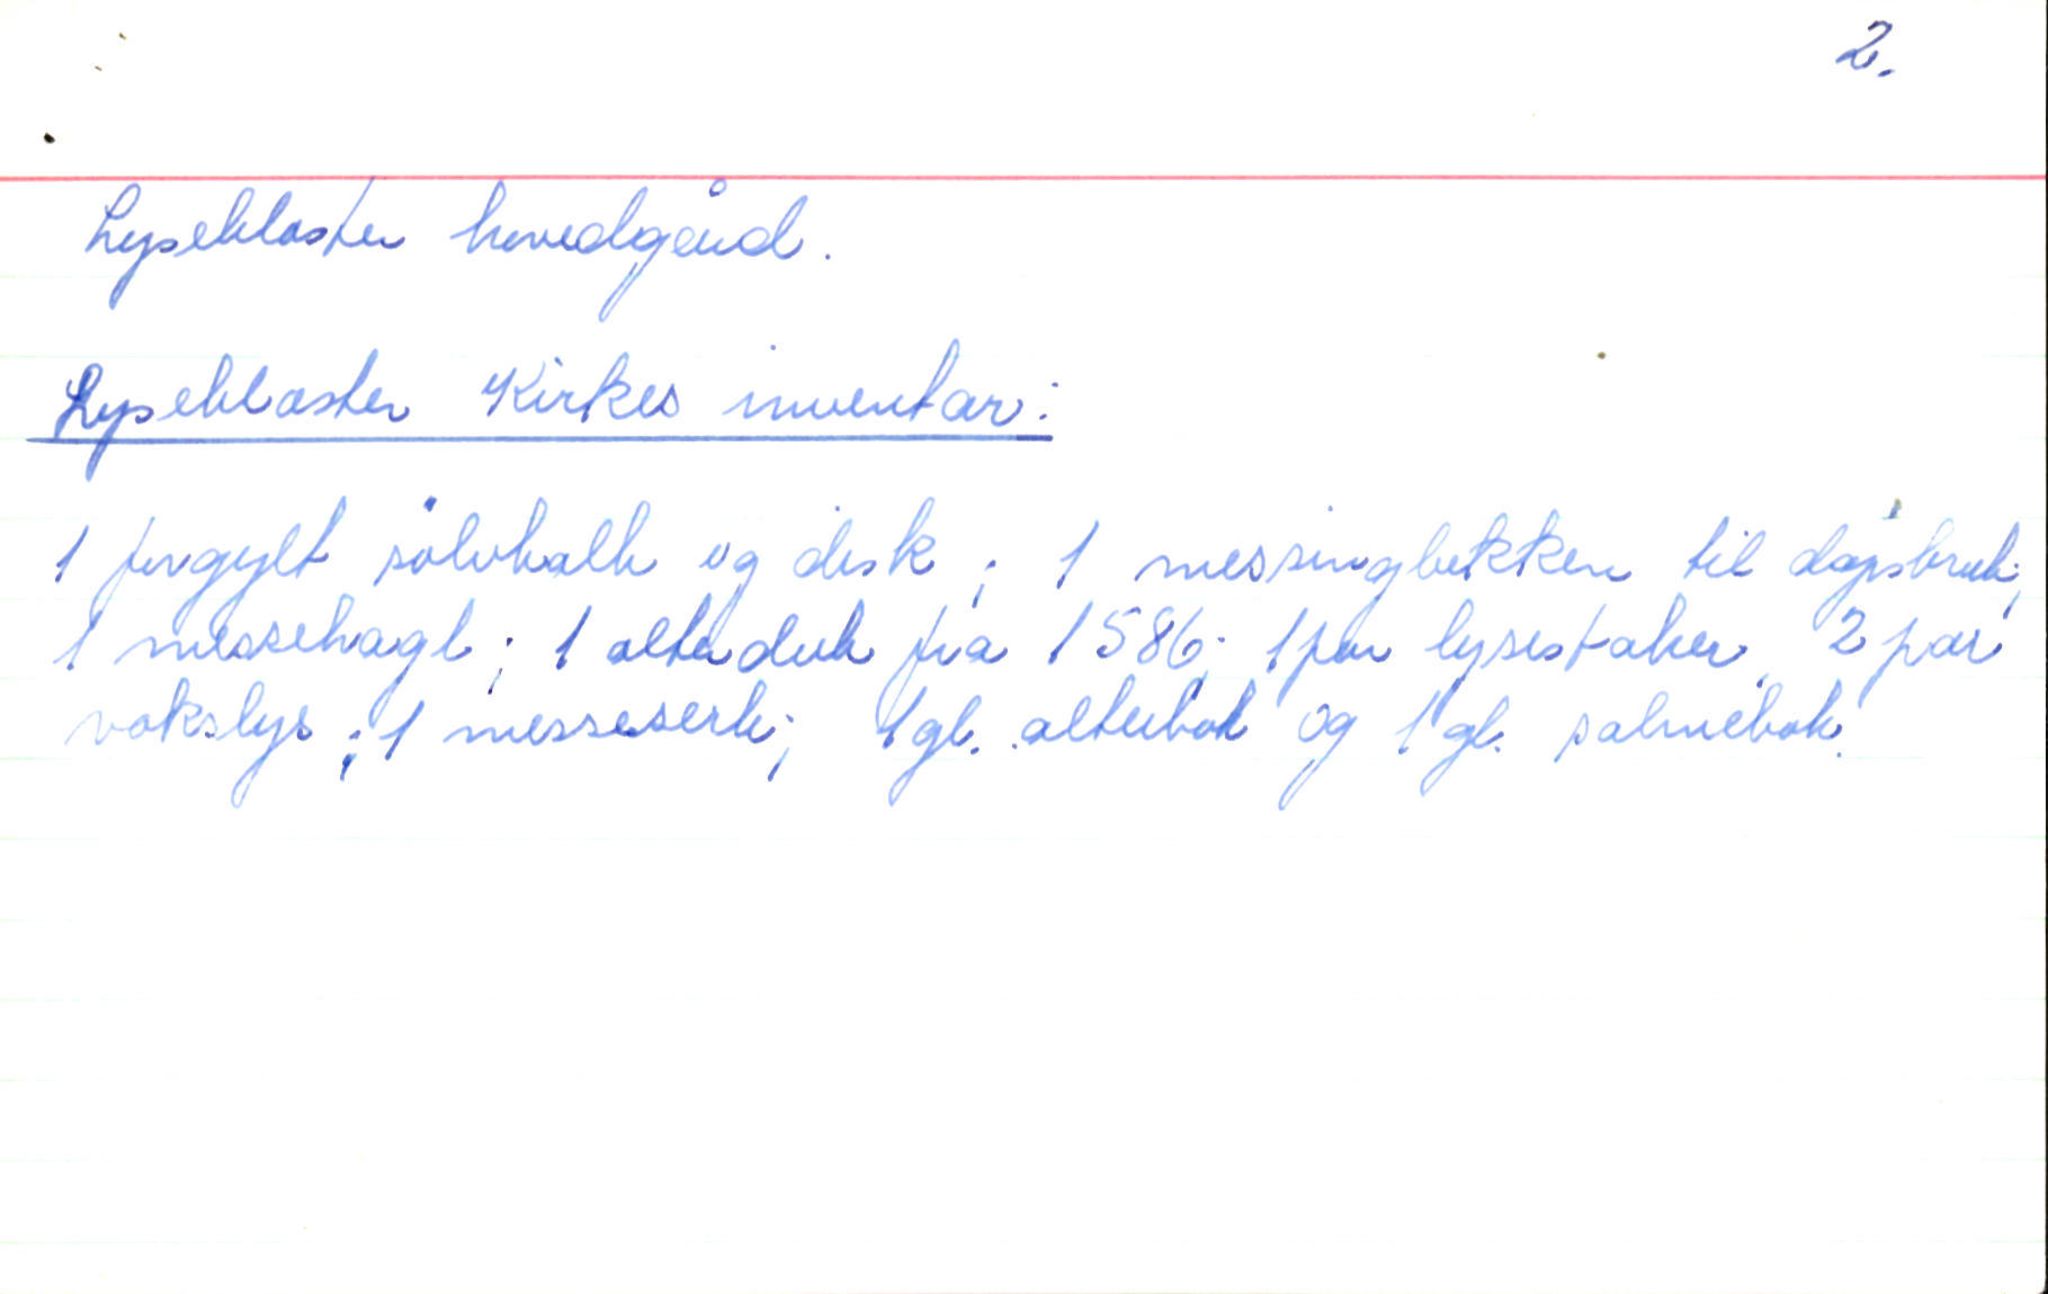 2.
Lysekloster hovedgård.
Lysekloster Kirkes inventar:
1 forgylt sølvkalk og disk; 1 messingbekken til dåpsbruk;
1 messehagl; 1 alterduk fra 1586; 1 par lysestaker, 2 par
vokslys; 1 messeserk; 1 gl. alterbok og 1 gl. salmebok.